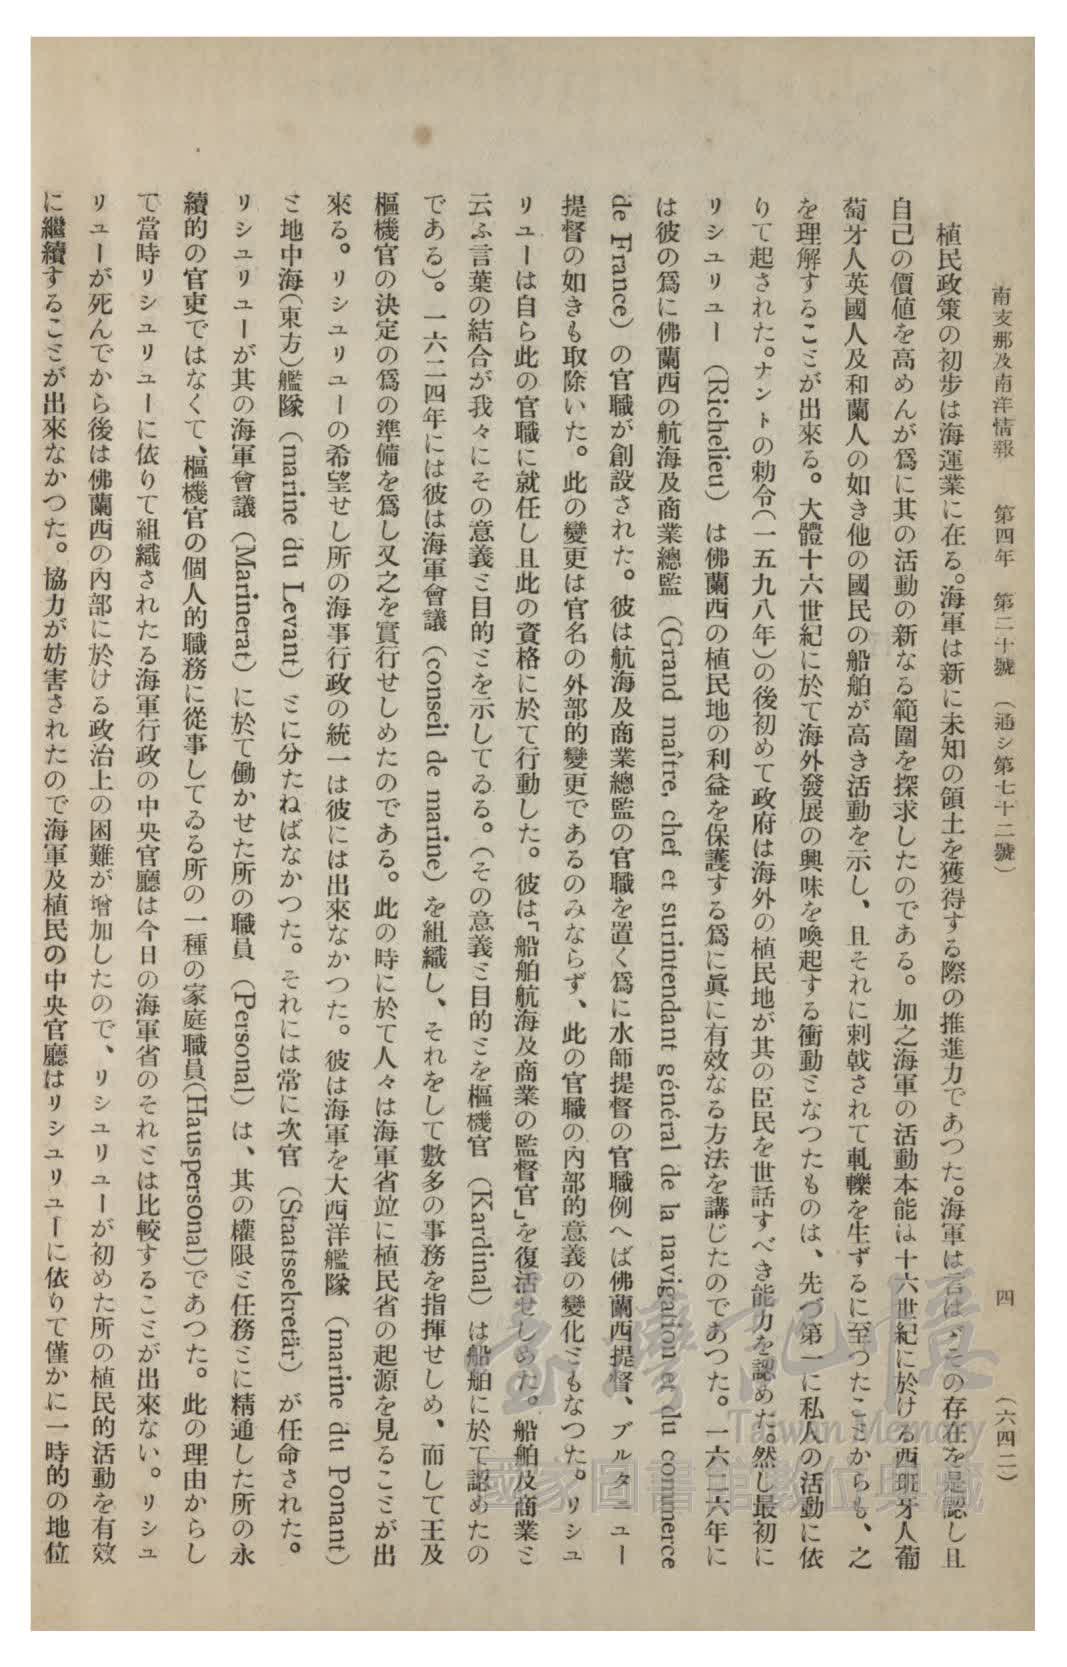 南支那及南洋情報　第四年　第二十號　（通シ第七十二號）　四　（六四二）
植民政策の初步は海運業に在る。海軍は新に未知の領土を獲得する際の推進力であつた。海軍は言はゞその存在を是認し且
自己の價値を高めんが爲に其の活動の新なる範圍を探求したのである。加之海軍の活動本能は十六世紀に於ける西班牙人葡
萄牙人英國人及和蘭人の如き他の國民の船舶が高き活動を示し、且それに刺戟されて軋轢を生ずるに至つたことからも、之
を理解することが出來る。大體十六世紀に於て海外發展の興味を喚起する衝動となつたものは、先づ第一に私人の活動に依
りて起された。ナントの勅令（一五九八年）の後初めて政府は海外の植民地が其の臣民を世話すべき能力を認めた。然し最初に
リシュリュー（Richelieu）は佛蘭西の植民地の利益を保護する爲に眞に有效なる方法を講じたのであつた。一六二六年に
は彼の爲に佛蘭西の航海及商業總監（Grand maître, chef et surintendant général de la navigation et du commerce
de France）の官職が創設された。彼は航海及商業總監の官職を置く爲に水師提督の官職例へば佛蘭西提督、ブルターニュー
提督の如きも取除いた。此の變更は官名の外部的變更であるのみならず、此の官職の內部的意義の變化ともなつた。リシュ
リューは自ら此の官職に就任し且此の資格に於て行動した。彼は「船舶航海及商業の監督官」を復活せしめた。船舶及商業と
云ふ言葉の結合が我々にその意義と目的とを示してゐる。（その意義と目的とを樞機官（Kardinal）は船舶に於て認めたの
である）。一六二四年には彼は海軍會議（conseil de marine）を組織し、それをして數多の事務を指揮せしめ、而して王及
樞機官の決定の爲の準備を爲し又之を實行せしめたのである。此の時に於て人々は海軍省竝に植民省の起源を見ることが出
來る。リシュリューの希望せし所の海事行政の統一は彼には出來なかつた。彼は海軍を大西洋艦隊（marine du Ponant）
と地中海（東方）艦隊（marine du Levant）とに分たねばなかつた。それには常に次官（Staatssekretär）が任命された。
リシュリューが其の海軍會議（Marinerat）に於て働かせた所の職員（Personal）は、其の權限と任務とに精通した所の永
續的の官吏ではなくて、樞機官の個人的職務に從事してゐる所の一種の家庭職員（Hauspersonal）であつた。此の理由からし
て當時リシュリューに依りて組織されたる海軍行政の中央官廳は今日の海軍省のそれとは比較することが出來ない。リシュ
リューが死んでから後は佛蘭西の內部に於ける政治上の困難が增加したので、リシュリューが初めた所の植民的活動を有效
に繼續することが出來なかつた。協力が妨害されたので海軍及植民の中央官廳はリシュリューに依りて僅かに一時的の地位
臺灣記憶
Taiwan Memory
國家圖書館數位典藏